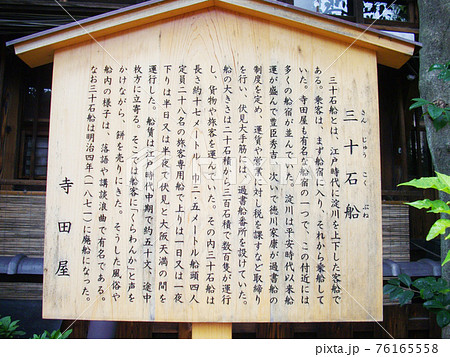 三十石船
さんじゅっこくぶね
三十石船とは、江戸時代に淀川を上下した客船で
ある。乗客は、まず船宿に入り、それから乗船して
いた。寺田屋も有名な船宿の一つで、この付近には
多くの船宿が並んでいた。淀川は平安時代以来船
運が盛んで豊臣秀吉、次いで徳川家康が過書船の
制度を定め、運賃や営業に対し税を課すなど取締り
を行い、伏見大手筋には、過書船番所を設けていた。
船の大きさは二十石積から三百石積で数百隻が運行
し、貨物や旅客を運んでいた。その内三十石船は
長さ約十七メートル、巾二・五メートル船頭四人
定員二十八名の旅客専用船で上りは一日又は一夜
下りは半日又は半夜で伏見と大阪天満の間を
運行した。船賃は江戸時代中期で約五十文、途中
枚方に立寄る。そこでは船客に「くらわんか」と声を
かけながら、餅を売りにきた。そうした風俗や
船内の様子は、落語や講談浪曲で有名である。
なお三十石船は明治四年(一八七一)に廃船になった。
寺田屋
PIXTA
pixta.jp - 76165558